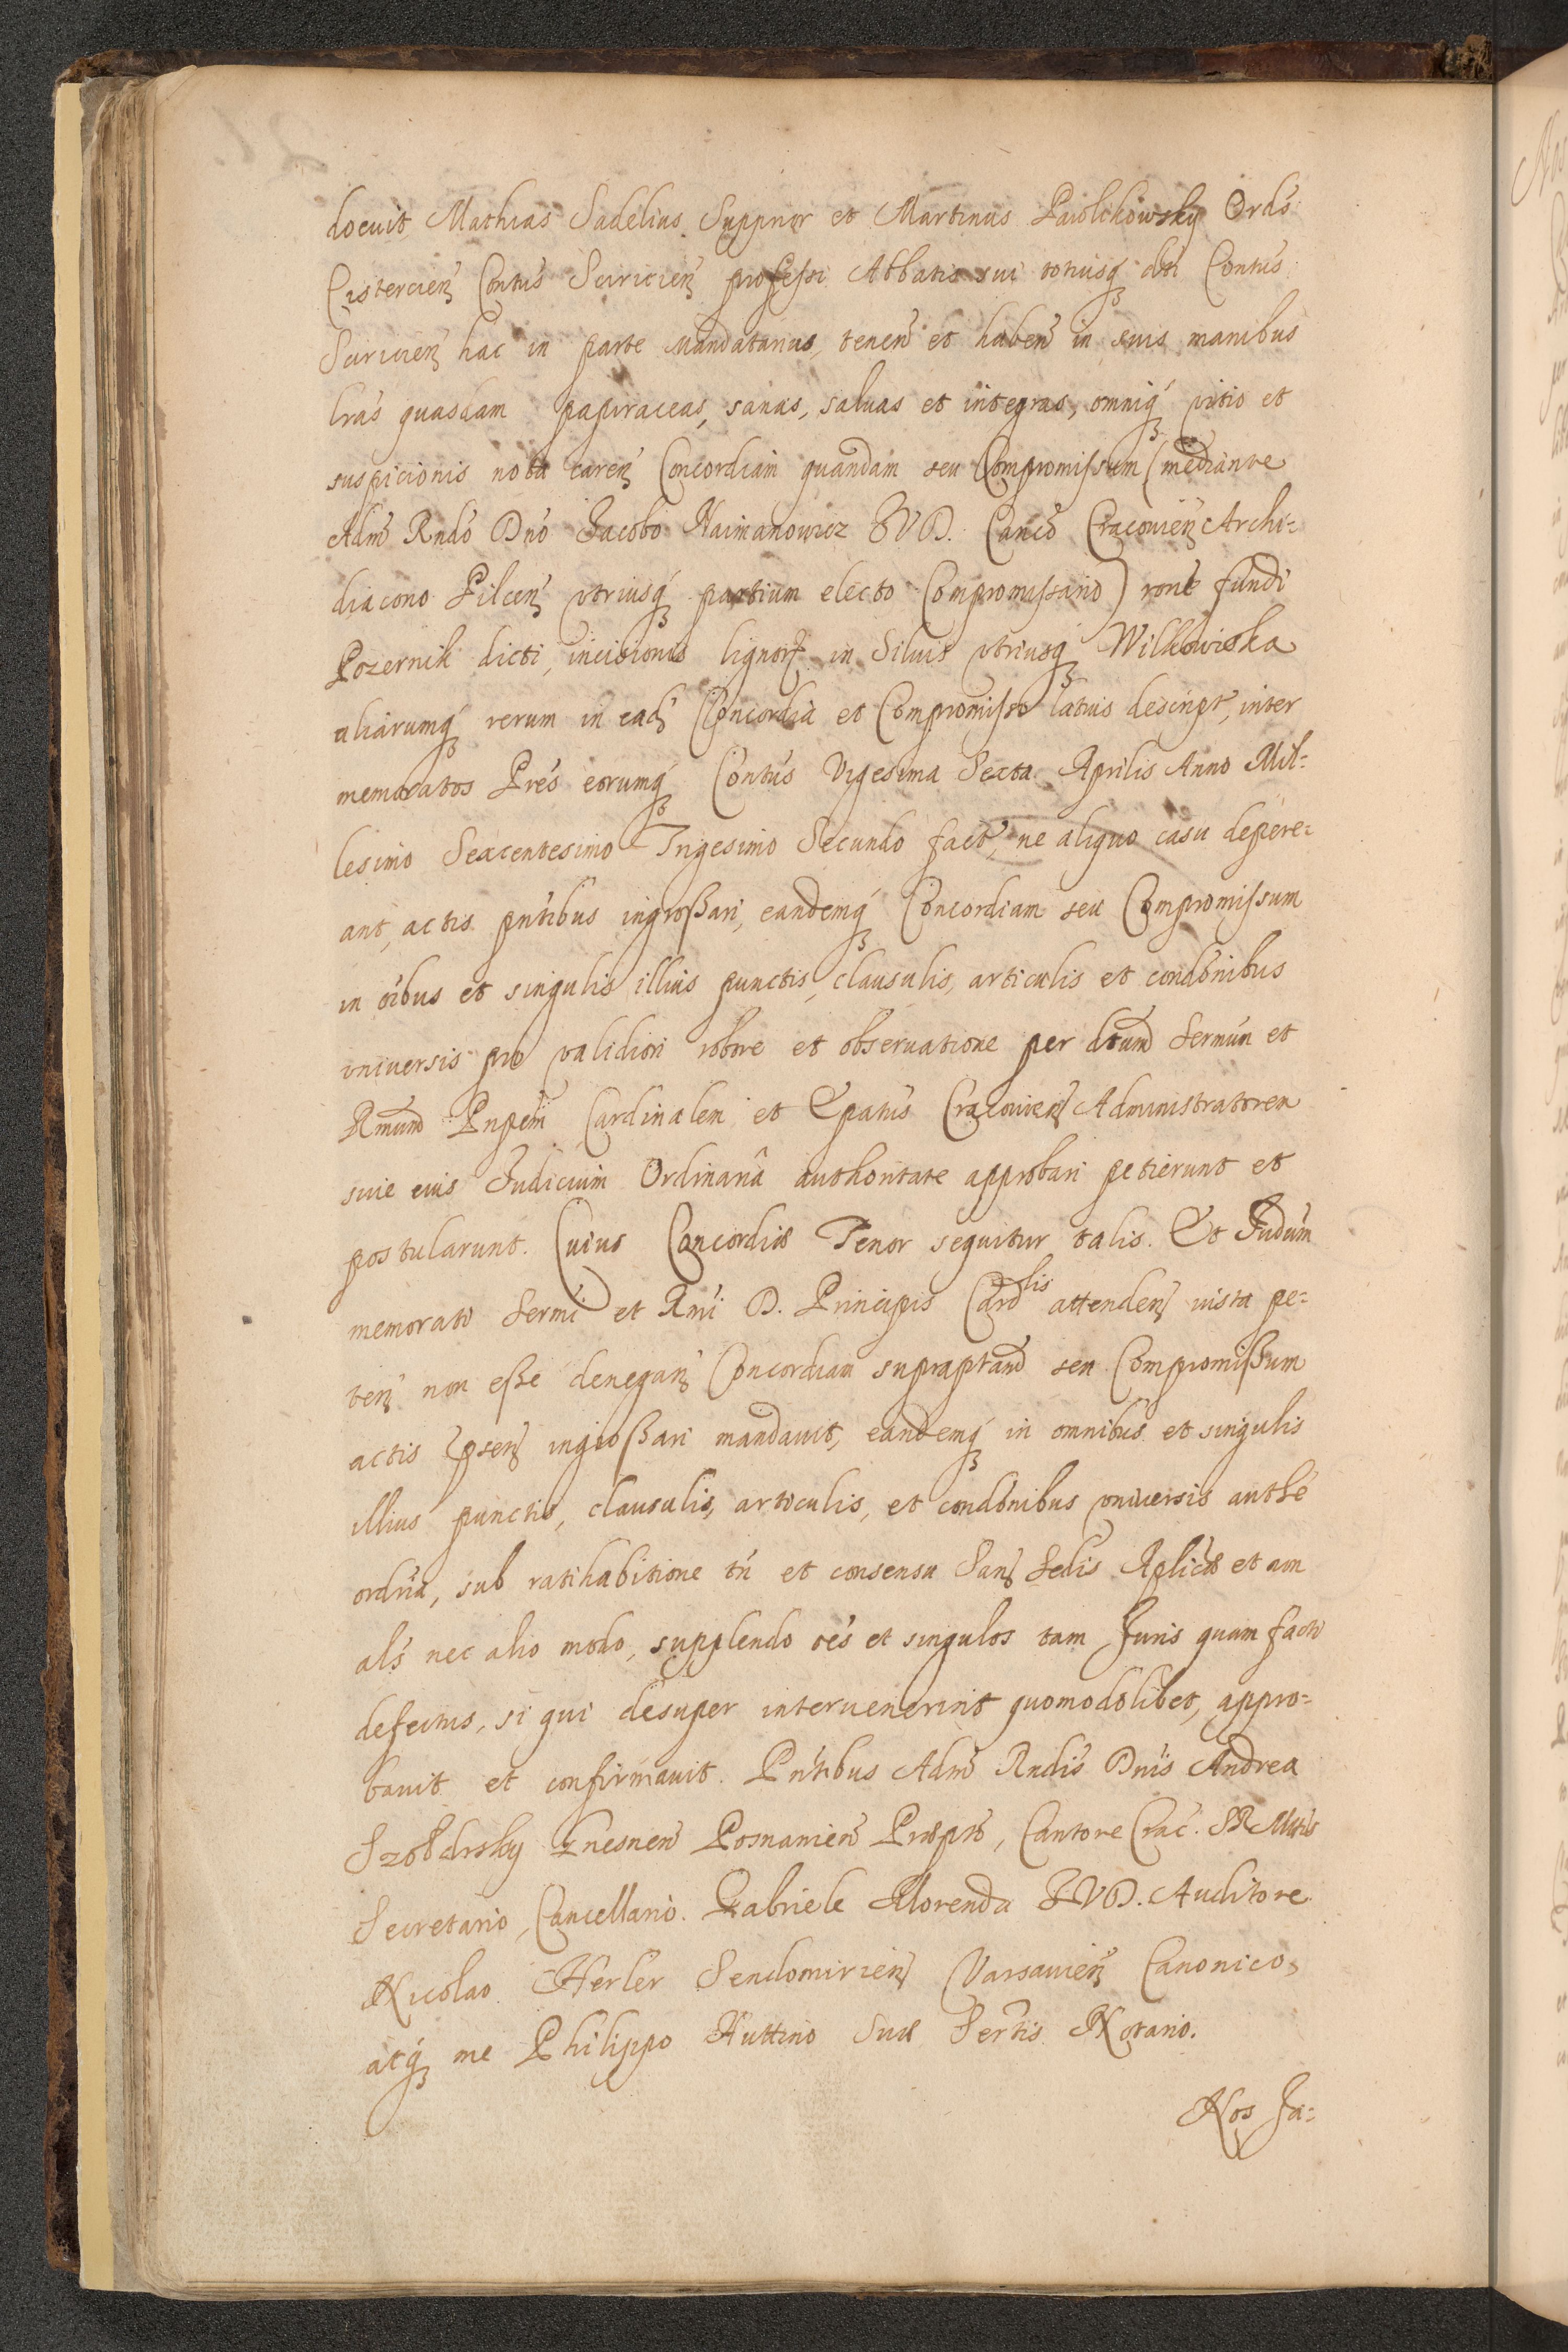 docuit Mathias Sadelius Supprior et Martinus Pawlchowsky Ord's
Cisterciens Contus Sciricien professi Abbatis sui totiusq dti Contus
Sciricien hac in parte Mandatarius, tenen et haben in suis manibus
lras quasdam papiraceas, sanas, saluas et integras, omniq vitio et
suspicionis nota caren Concordiam quandam seu Compromissum (mediante
Adm Rndo Dno Jacobo Naimanowicz JVD. Canco Cracovien Archi=
diacono Pilcen vtriusq partium electo Compromissario) rone fundi
Pozernik dicti, incisionis lignor in Siluis vtriusq Wilkowiska
aliarumq rerum in ead Concordia et Compromisso latius descript, inter
memoratos Pres eorumq Contus Vigesima Sexta Aprilis Anno Mil=
lesimo Sexcentesimo Trigesimo Secundo fact, ne aliquo casu depere=
ant, actis pntibus ingrossari, eandemq Concordiam seu Compromissum
in oibus et singulis illius punctis, clausulis, articulis et condonibus
vniuersis pro validiori robore et obseruatione per dtum Sermum et
Rmum Pnpem Cardinalem et Epatus Cracouien Administratorem
siue eius Judicium Ordinaria authoritate approbari petierunt et
postularunt. Cuius Concordiæ Tenor sequitur talis. Et Judum
memorati Sermi et Rmi D. Principis Cardlis attenden iusta pe=
ten non esse denegan Concordiam supraptam seu Compromissum
actis psen ingrossari mandauit, eandemq in omnibus et singulis
illius punctis, clausulis, articulis, et condonibus vniuersis authe
ordria, sub ratihabitione tn et consensu San Sedis Aplicæ et non
als nec alio modo, supplendo oes et singulos tam Juris quam facti
defectus, si qui desuper interuenerint quomodolibet, appro=
bauit et confirmauit. Pntibus Adm Rndis Dnis Andrea
Szołdrsky Gnesnen Posnanien Præpto, Cantore Crac. SR Mttis
Secretario, Cancellario. Gabriele Morenda JVD. Auditore
Nicolao Herler Sendomirien Varsauien Canonico,
atq me Philippo Huttino Suæ Sertis Notario.
Nos Ja=